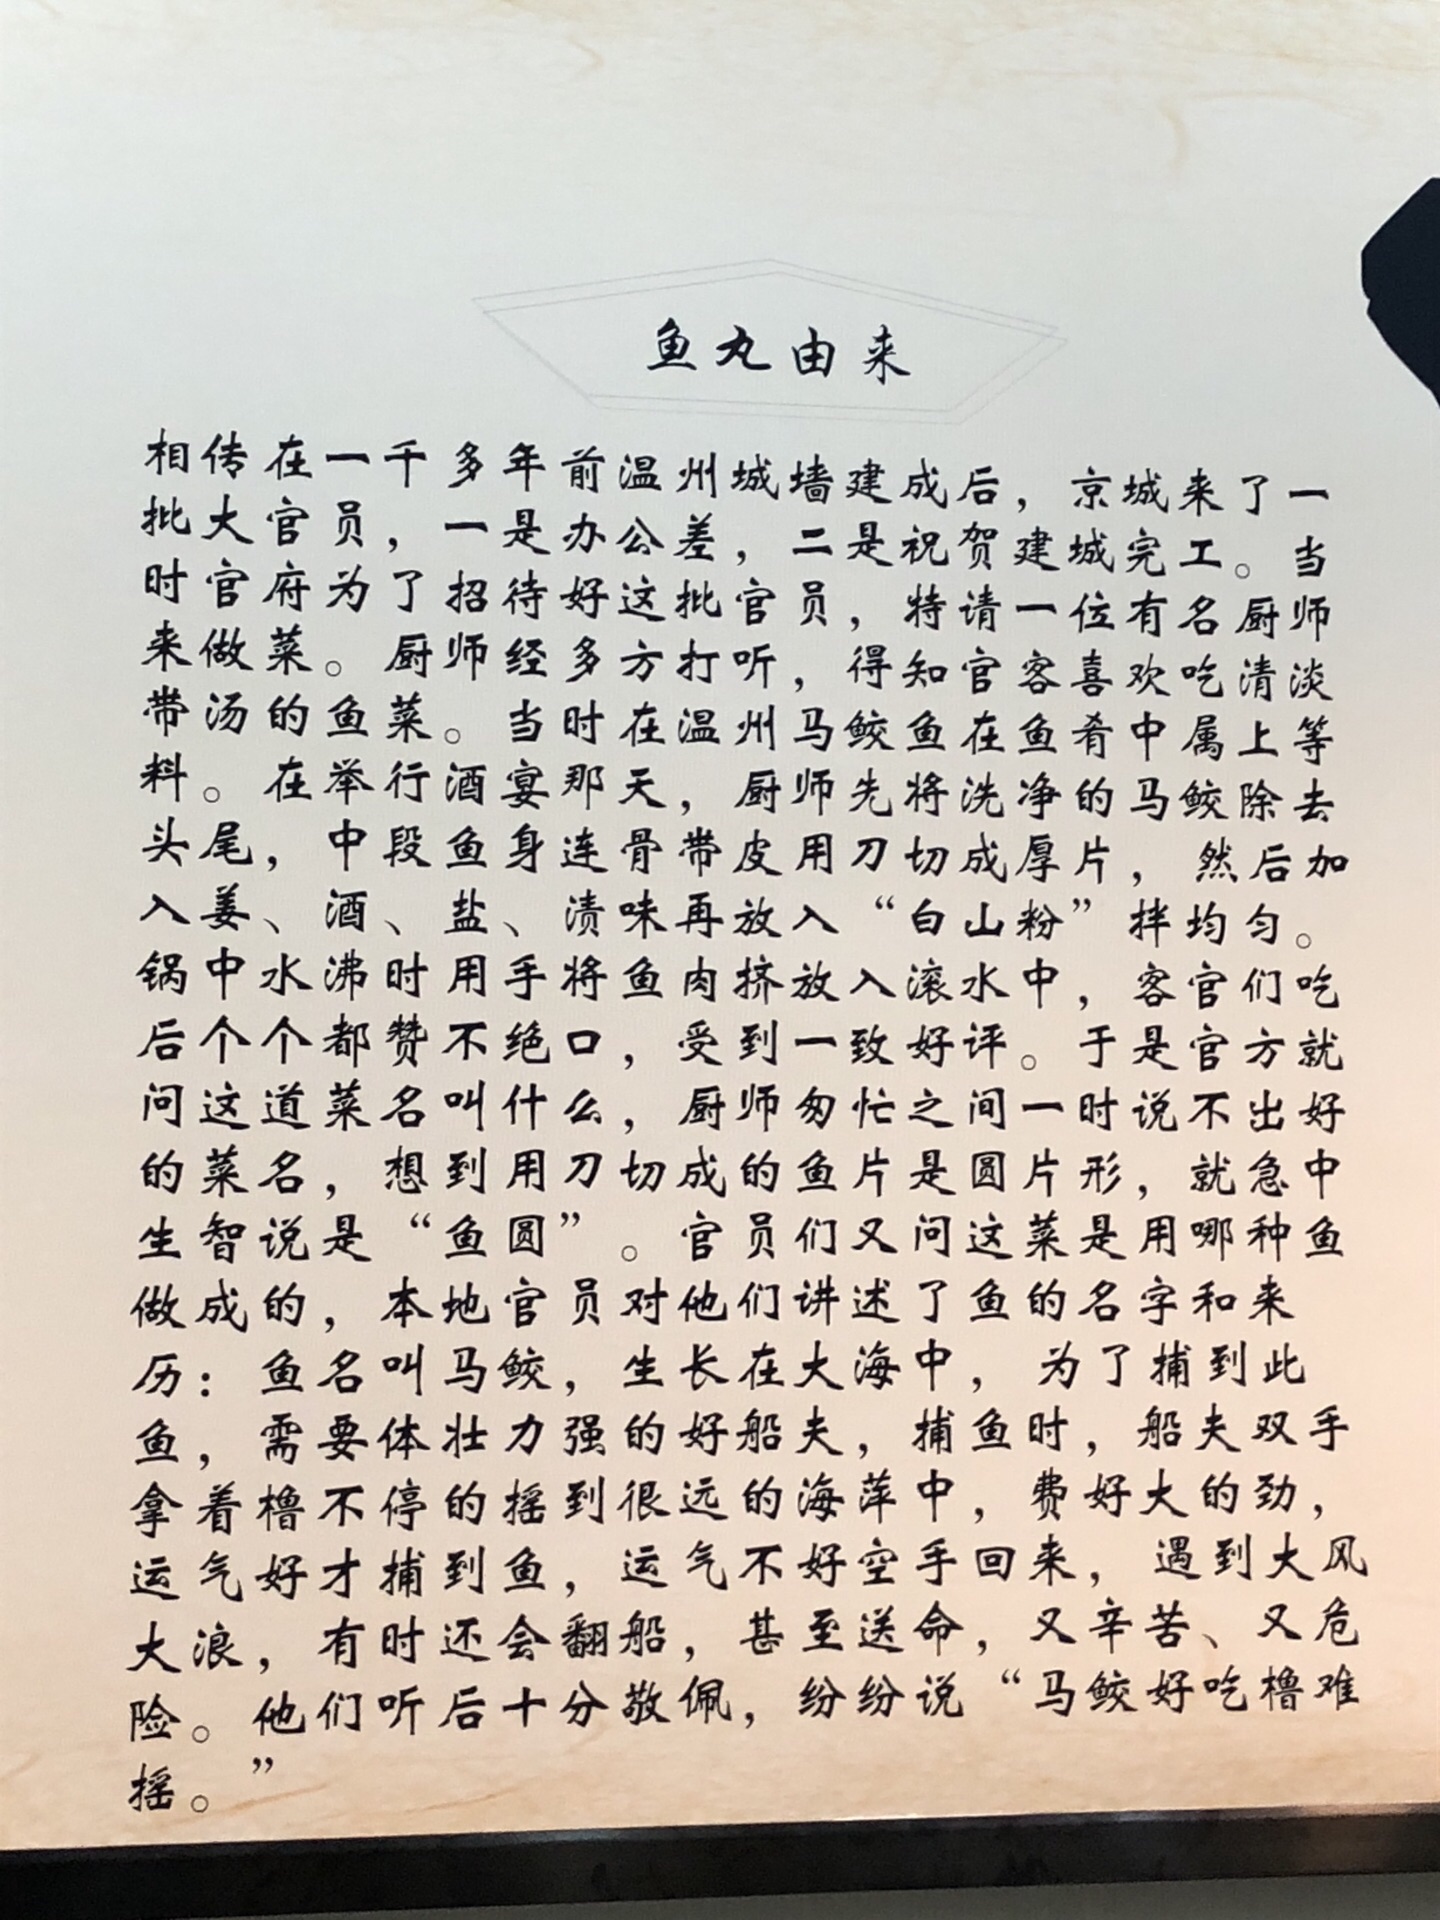 鱼丸由来
相传在一千多年前温州城墙建成后，京城来了一
批大官员，一是办公差，二是祝贺建城完工。当
时官府为了招待好这批官员，特请一位有名厨师
来做菜。厨师经多方打听，得知官客喜欢吃清淡
带汤的鱼菜。当时在温州马鲛鱼在鱼肴中属上等
料。在举行酒宴那天，厨师先将洗净的马鲛除去
头尾，中段鱼身连骨带皮用刀切成厚片，然后加
入姜、酒、盐、渍味再放入“白山粉”拌均匀。
锅中水沸时用手将鱼肉挤放入滚水中，客官们吃
后个个都赞不绝口，受到一致好评。于是官方就
问这道菜名叫什么，厨师匆忙之间一时说不出好
的菜名，想到用刀切成的鱼片是圆片形，就急中
生智说是“鱼圆”。官员们又问这菜是用哪种鱼
做成的，本地官员对他们讲述了鱼的名字和来
历：鱼名叫马鲛，生长在大海中，为了捕到此
鱼，需要体壮力强的好船夫，捕鱼时，船夫双手
拿着橹不停的摇到很远的海萍中，费好大的劲，
运气好才捕到鱼，运气不好空手回来，遇到大风
大浪，有时还会翻船，甚至送命，又辛苦、又危
险。他们听后十分敬佩，纷纷说“马鲛好吃橹难
摇。”